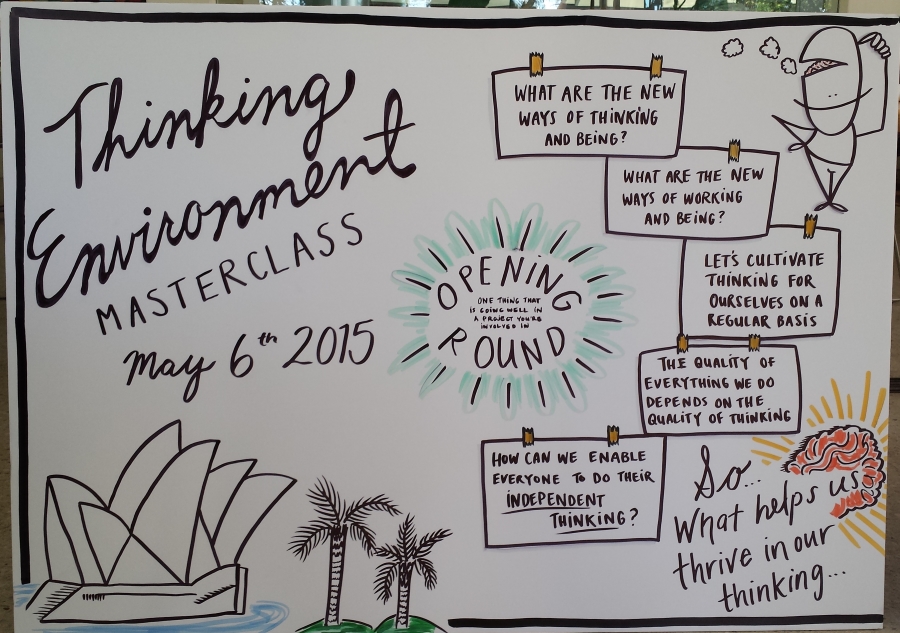 Thinking
Environment
MASTERCLASS
May 6th 2015
OPENING
ONE THING THAT
IS GOING WELL IN
A PROJECT YOU'RE
INVOLVED IN
ROUND
WHAT ARE THE NEW
WAYS OF THINKING
AND BEING?
WHAT ARE THE NEW
WAYS OF WORKING
AND BEING?
LET'S CULTIVATE
THINKING FOR
OURSELVES ON A
REGULAR BASIS
THE QUALITY OF
EVERYTHING WE DO
DEPENDS ON THE
QUALITY OF THINKING
HOW CAN WE ENABLE
EVERYONE TO DO THEIR
INDEPENDENT
THINKING?
So...
What helps us
thrive in our
thinking...